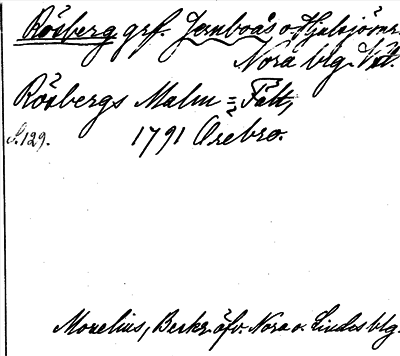 Rösberg grf. Jernboås o. Hjulsjöons.
Nora blg. Vstl.
Rösbergs Malm = Fält,
S. 129. 1791 Örebro.
Morelius, Beskr. öfv. Nora o. Lindes blg.